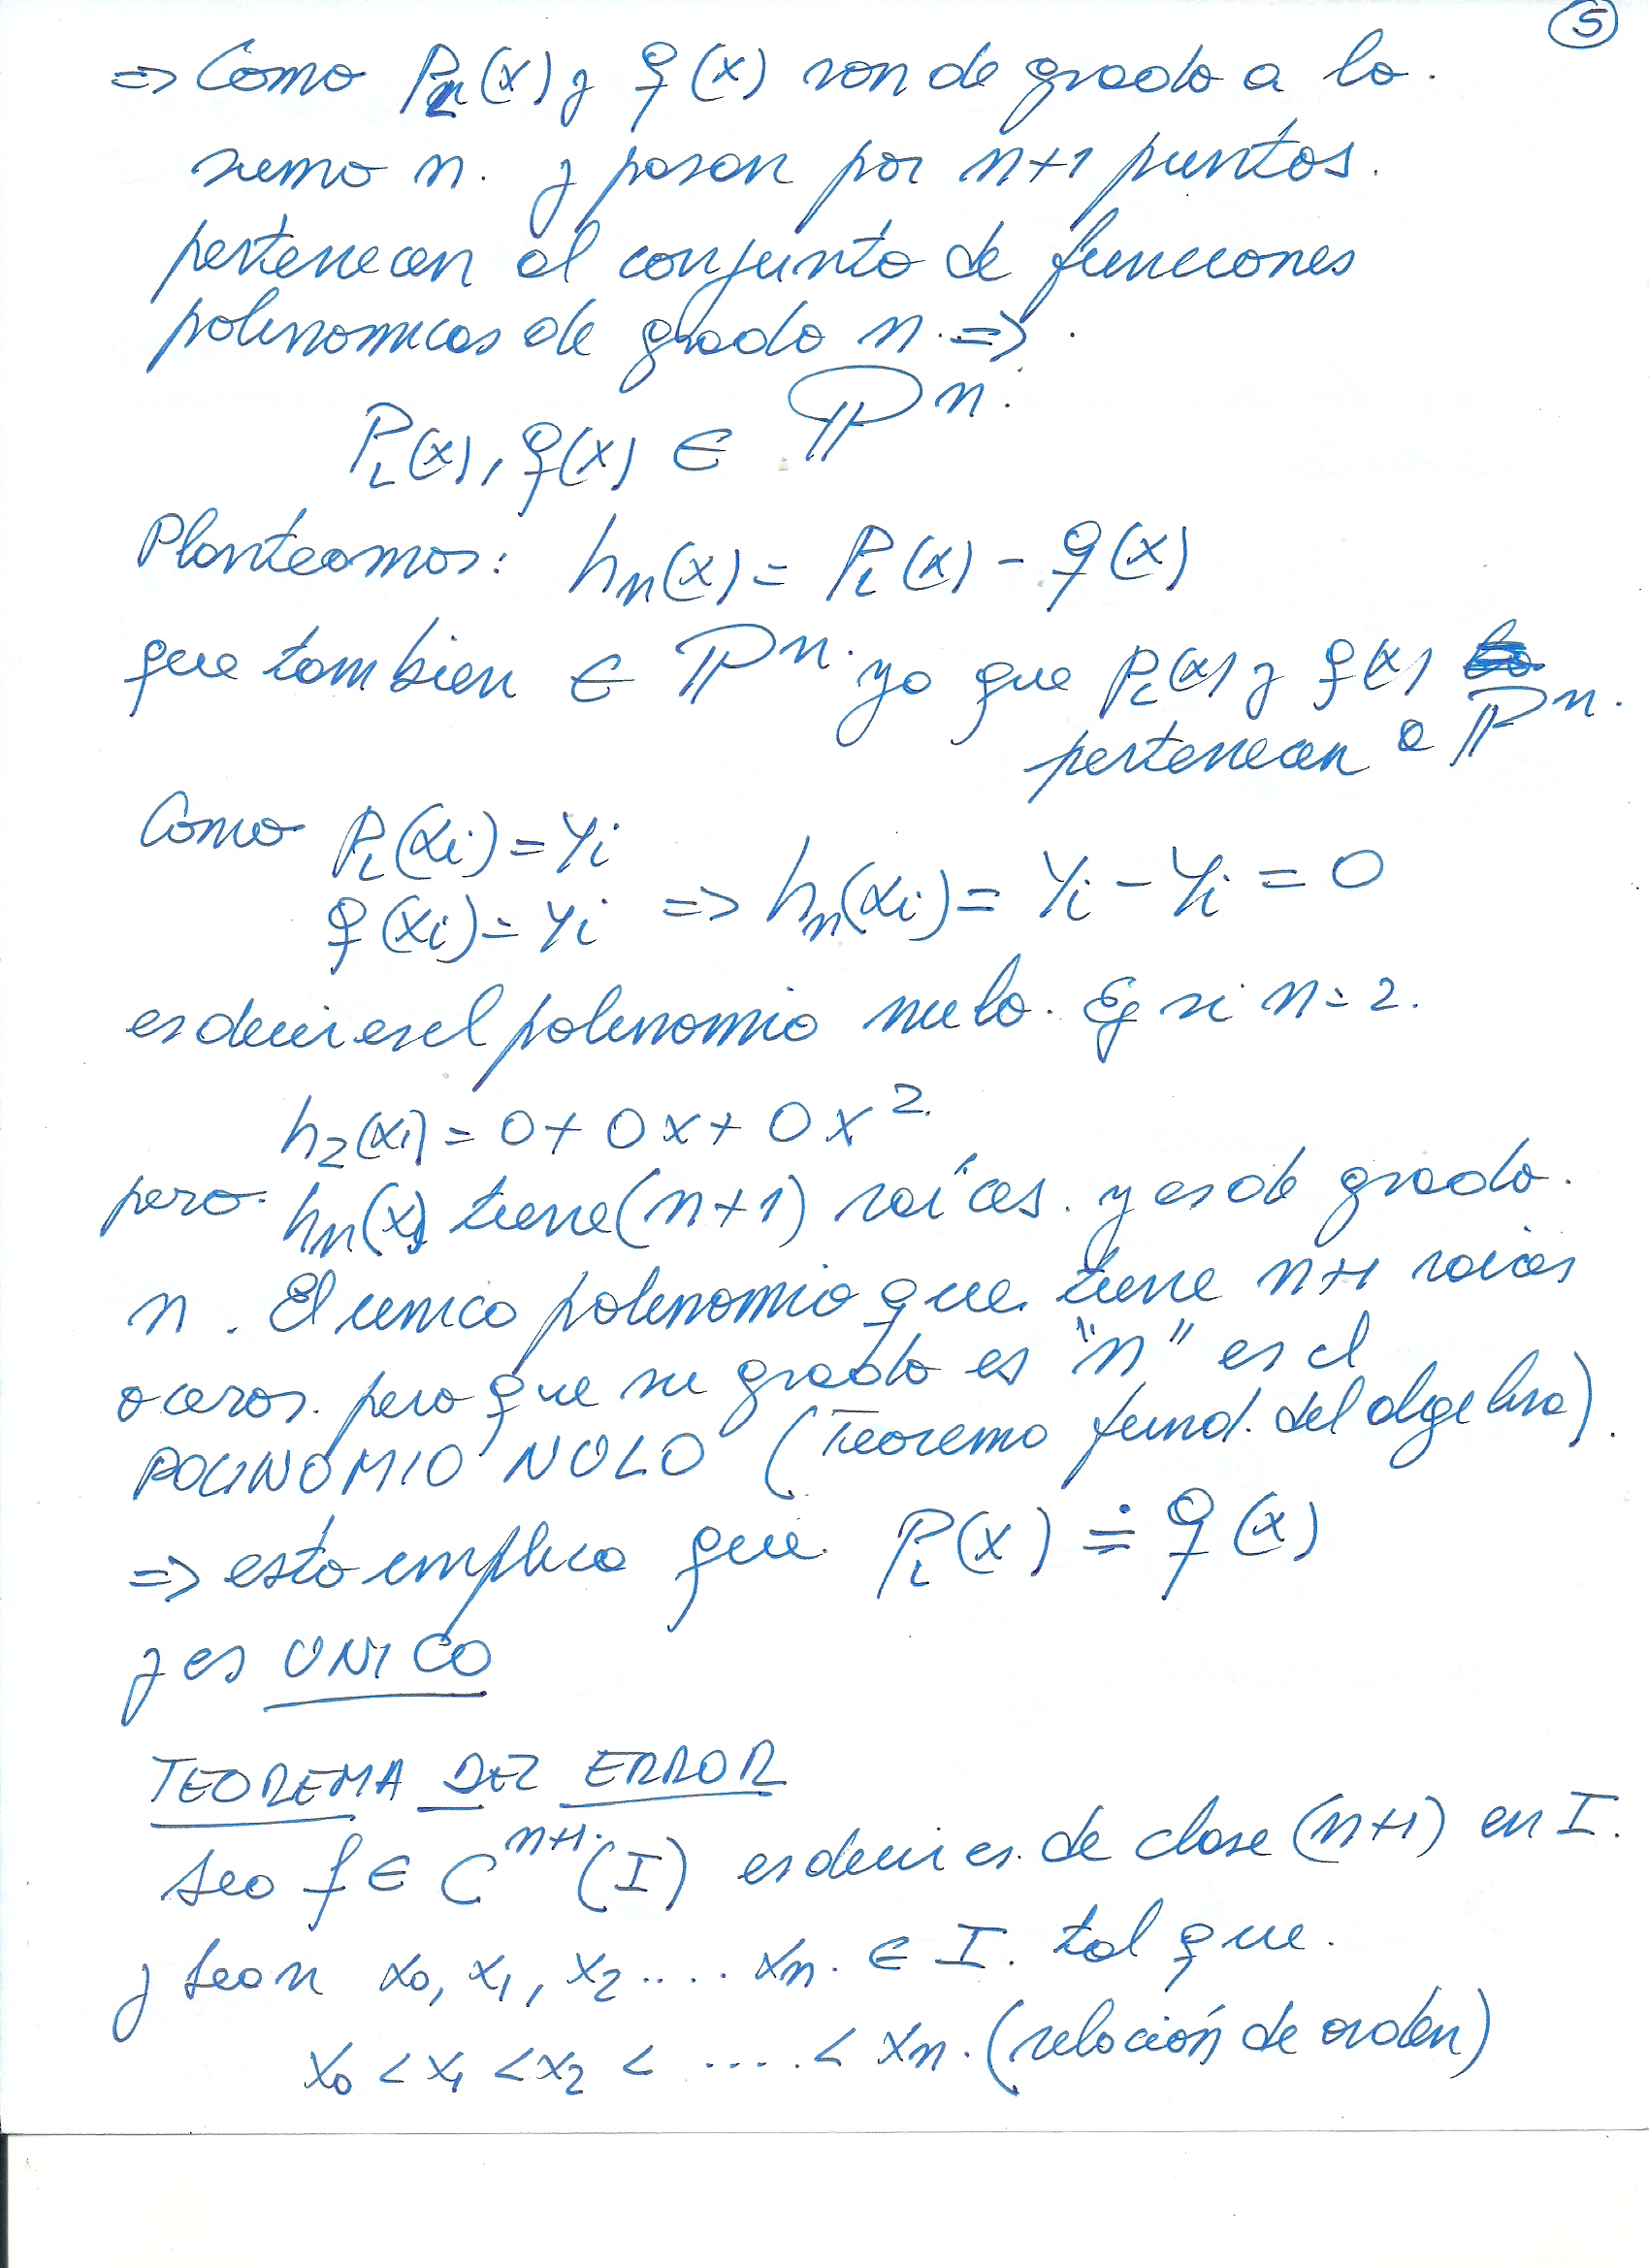 5
=> Como P_L(x) y q(x) son de grado a lo
sumo n. y pasan por n+1 puntos.
pertenecen al conjunto de funciones
polinomicas de grado n. =>
P_L(x), q(x) ∈ ℙ^n.
Planteamos: h_n(x) = P_L(x) - q(x)
que tambien ∈ ℙ^n. ya que P_L(x) y q(x)
pertenecen a ℙ^n.
Como P_L(xi) = yi
q(xi) = yi => h_n(xi) = yi - yi = 0
es decir es el polinomio nulo. Ej si n = 2.
h_2(x) = 0 + 0x + 0x^2.
pero h_n(x) tiene (n+1) raíces. y es de grado.
n. El unico polinomio que tiene n+1 raices
o ceros. pero que su grado es "n" es el
POLINOMIO NULO (Teorema fund. del algebra).
=> esto implica que P_L(x) ≐ q(x)
y es UNICO
TEOREMA DEL ERROR
Sea f ∈ C^{n+1}(I) es decir es de clase (n+1) en I.
y sean x_0, x_1, x_2 .... x_n. ∈ I. tal que.
x_0 < x_1 < x_2 < .... < x_n. (relación de orden)